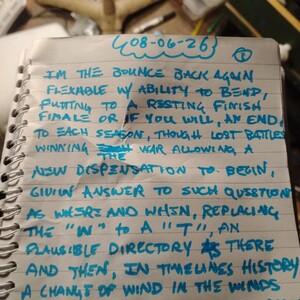 (08-06-26)
1
I'M THE BOUNCE BACK AGAIN
FLEXABLE W/ ABILITY TO BEND,
PUTTING TO A RESTING FINISH
FINALE OR IF YOU WILL, AN END,
TO EACH SEASON, THOUGH LOST BATTLES
WINNING THE WAR ALLOWING A
NEW DISPENSATION TO BEGIN,
GIVIN ANSWER TO SUCH QUESTION
AS WHERE AND WHEN, REPLACING
THE "W" to A "T", AN
PLAUSIBLE DIRECTORY AS THERE
AND THEN, IN TIMELINES HISTORY
A CHANGE OF WIND IN THE WINDS